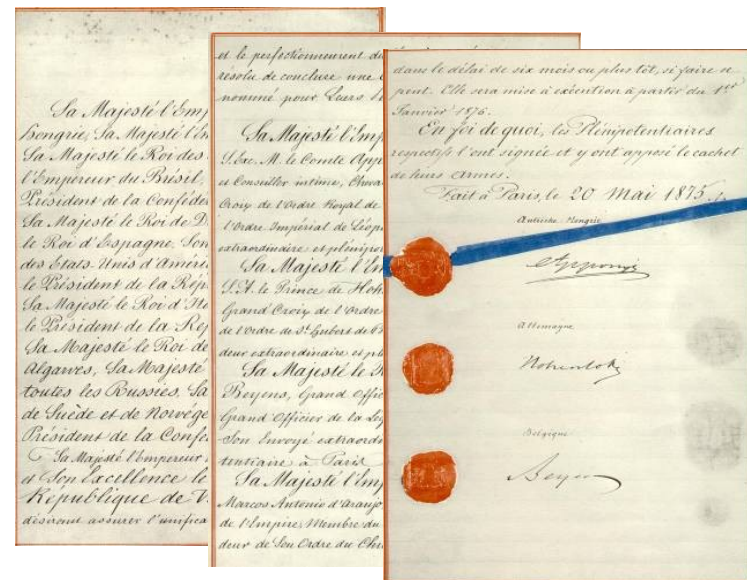 Sa Majesté l'Emp
Hongrie, Sa Majesté l'Em
Sa Majesté le Roi des
l'Empereur du Brésil,
Président de la Conféder
Sa Majesté le Roi de D
le Roi d'Espagne, Son
des Etats-Unis d'Améri
le Président de la Rép
Sa Majesté le Roi d'Ita
le Président de la Rép
Sa Majesté le Roi de
Algarves, Sa Majesté
toutes les Russies, Sa
de Suède et de Norvége
Président de la Confé
Sa Majesté l'Empereur
et Son Excellence le
République de V
désirant assurer l'unifica
et le perfectionnement du
résolu de conclure une
nommé pour Leurs
Sa Majesté l'Emp
S. Exc. M. le Comte App
et Conseiller intime, Cheva
Croix de l'Ordre Royal de
l'Ordre Impérial de Léop
extraordinaire et plénipo
Sa Majesté l'Em
S. A. le Prince de Hoh
Grand Croix de l'Ordre
de l'Ordre de St. Hubert de
deur extraordinaire et pl
Sa Majesté le R
Beyens, Grand Offic
Grand Officier de la Lég
Son Envoyé extraordi
tentiaire à Paris
Sa Majesté l'Emp
Marcos Antonio d'Araujo
de l'Empire, Membre du
deur de Son Ordre du Chr
dans le délai de six mois ou plus tôt, si faire se
peut. Elle sera mise à exécution à partir du 1er
Janvier 1876.
En foi de quoi, les Plénipotentiaires
respectifs l'ont signée et y ont apposé le cachet
de leurs armes.
Fait à Paris, le 20 Mai 1875.
Autriche-Hongrie
Apponyi
Allemagne
Hohenlohe
Belgique
Beyens